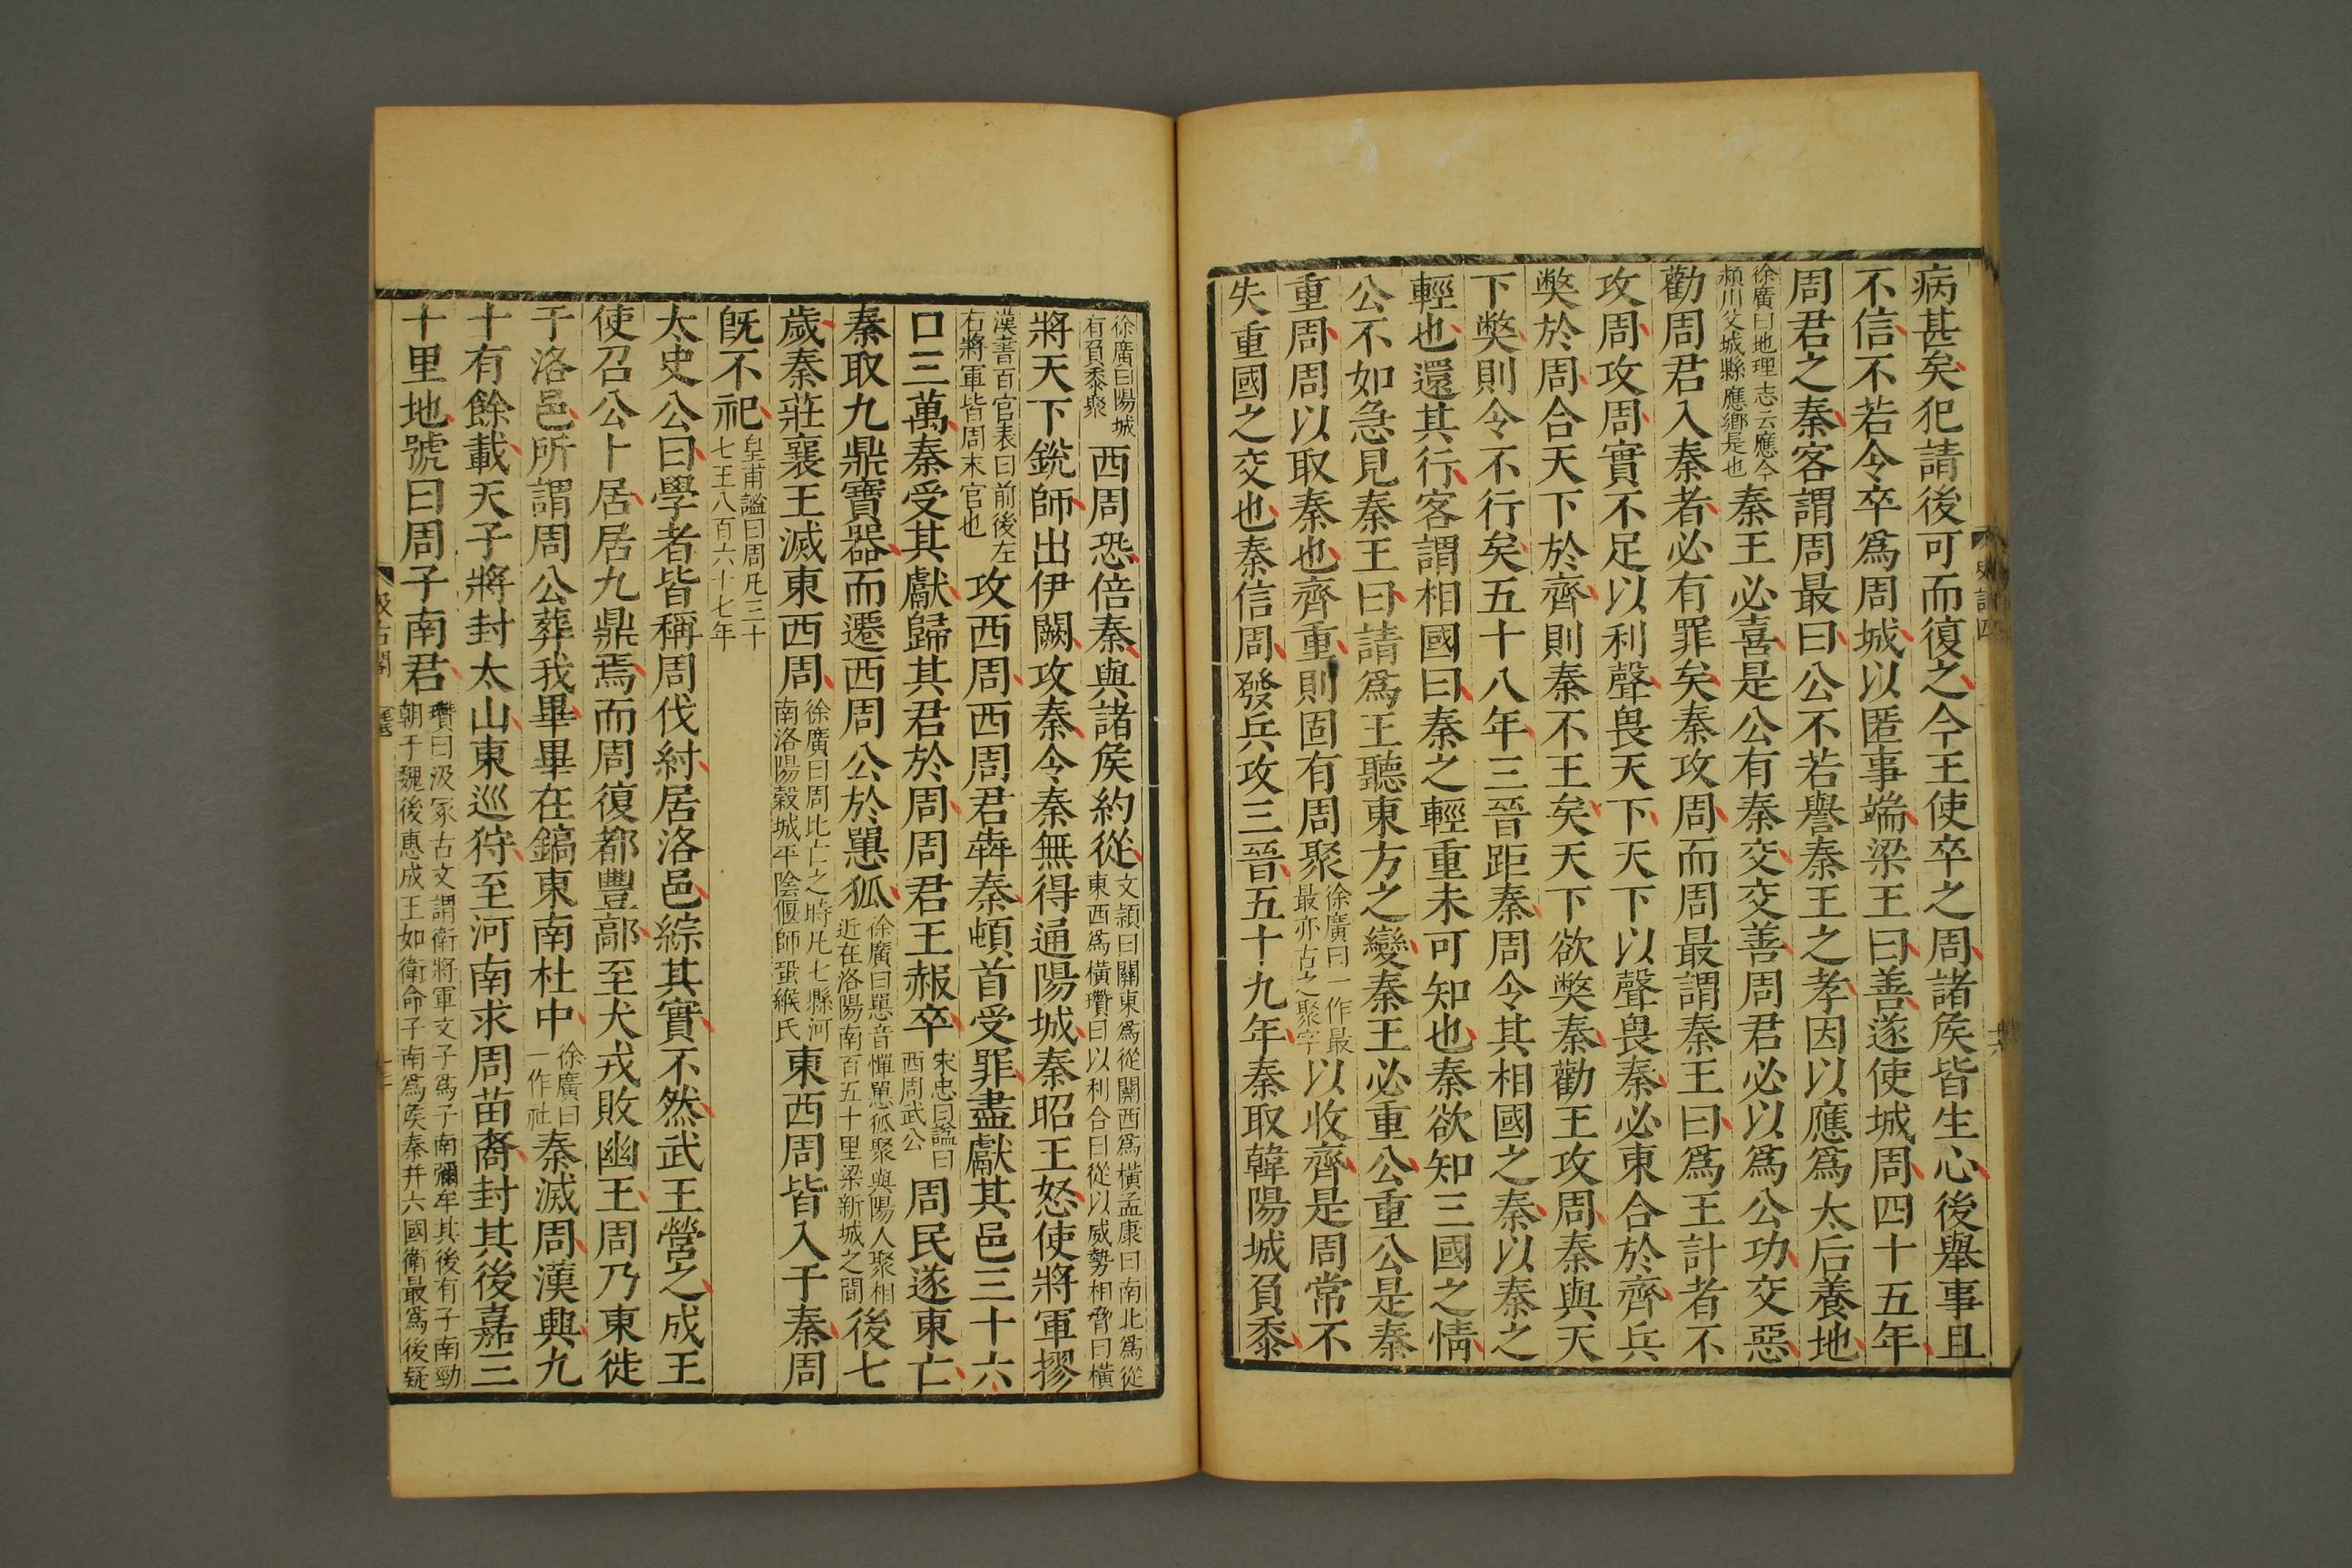 病甚矣犯請後可而復之今王使卒之周諸矦皆生心後舉事且
不信不若令卒爲周城以匿事端梁王曰善遂使城周四十五年
周君之秦客謂周最曰公不若譽秦王之孝因以應爲太后養地
徐廣曰地理志云應今
潁川父城縣應鄉是也
秦王必喜是公有秦交交善周君必以爲公功交惡
勸周君入秦者必有罪矣秦攻周而周最謂秦王曰爲王計者不
攻周攻周實不足以利聲畏天下天下以聲畏秦必東合於齊兵
獘於周合天下於齊則秦不王矣天下欲獘秦勸王攻周秦與天
下獘則令不行矣五十八年三晉距秦周令其相國之秦以秦之
輕也還其行客謂相國曰秦之輕重未可知也秦欲知三國之情
公不如急見秦王曰請爲王聽東方之變秦王必重公重公是秦
重周周以取秦也齊重則固有周聚
徐廣曰一作最
最亦古之聚字
以收齊是周常不
失重國之交也秦信周發兵攻三晉五十九年秦取韓陽城負黍
徐廣曰陽城
有負黍聚
西周恐倍秦與諸矦約從
文穎曰關東爲從關西爲橫孟康曰南北爲從
東西爲橫瓚曰以利合曰從以威勢相脅曰橫
將天下銳師出伊闕攻秦令秦無得通陽城秦昭王怒使將軍摎
漢書百官表曰前後左
右將軍皆周末官也
攻西周西周君犇秦頓首受罪盡獻其邑三十六
口三萬秦受其獻歸其君於周周君王赧卒
宋忠曰謚曰
西周武公
周民遂東亡
秦取九鼎寶器而遷西周公於𢠸狐
徐廣曰𢠸音憚𢠸狐聚與陽人聚相
近在洛陽南百五十里梁新城之間
後七
歲秦莊襄王滅東西周
徐廣曰周比亡之時凡七縣河
南洛陽穀城平陰偃師鞏緱氏
東西周皆入于秦周
旣不祀
皇甫謐曰周凡三十
七王八百六十七年
太史公曰學者皆稱周伐紂居洛邑綜其實不然武王營之成王
使召公卜居居九鼎焉而周復都豐鄗至犬戎敗幽王周乃東徙
于洛邑所謂周公葬我畢畢在鎬東南杜中
徐廣曰
一作社
秦滅周漢興九
十有餘載天子將封太山東巡狩至河南求周苗裔封其後嘉三
十里地號曰周子南君
瓚曰汲冢古文謂衛將軍文子爲子南彌牟其後有子南勁
朝于魏後惠成王如衛命子南爲矦秦并六國衛最爲後疑